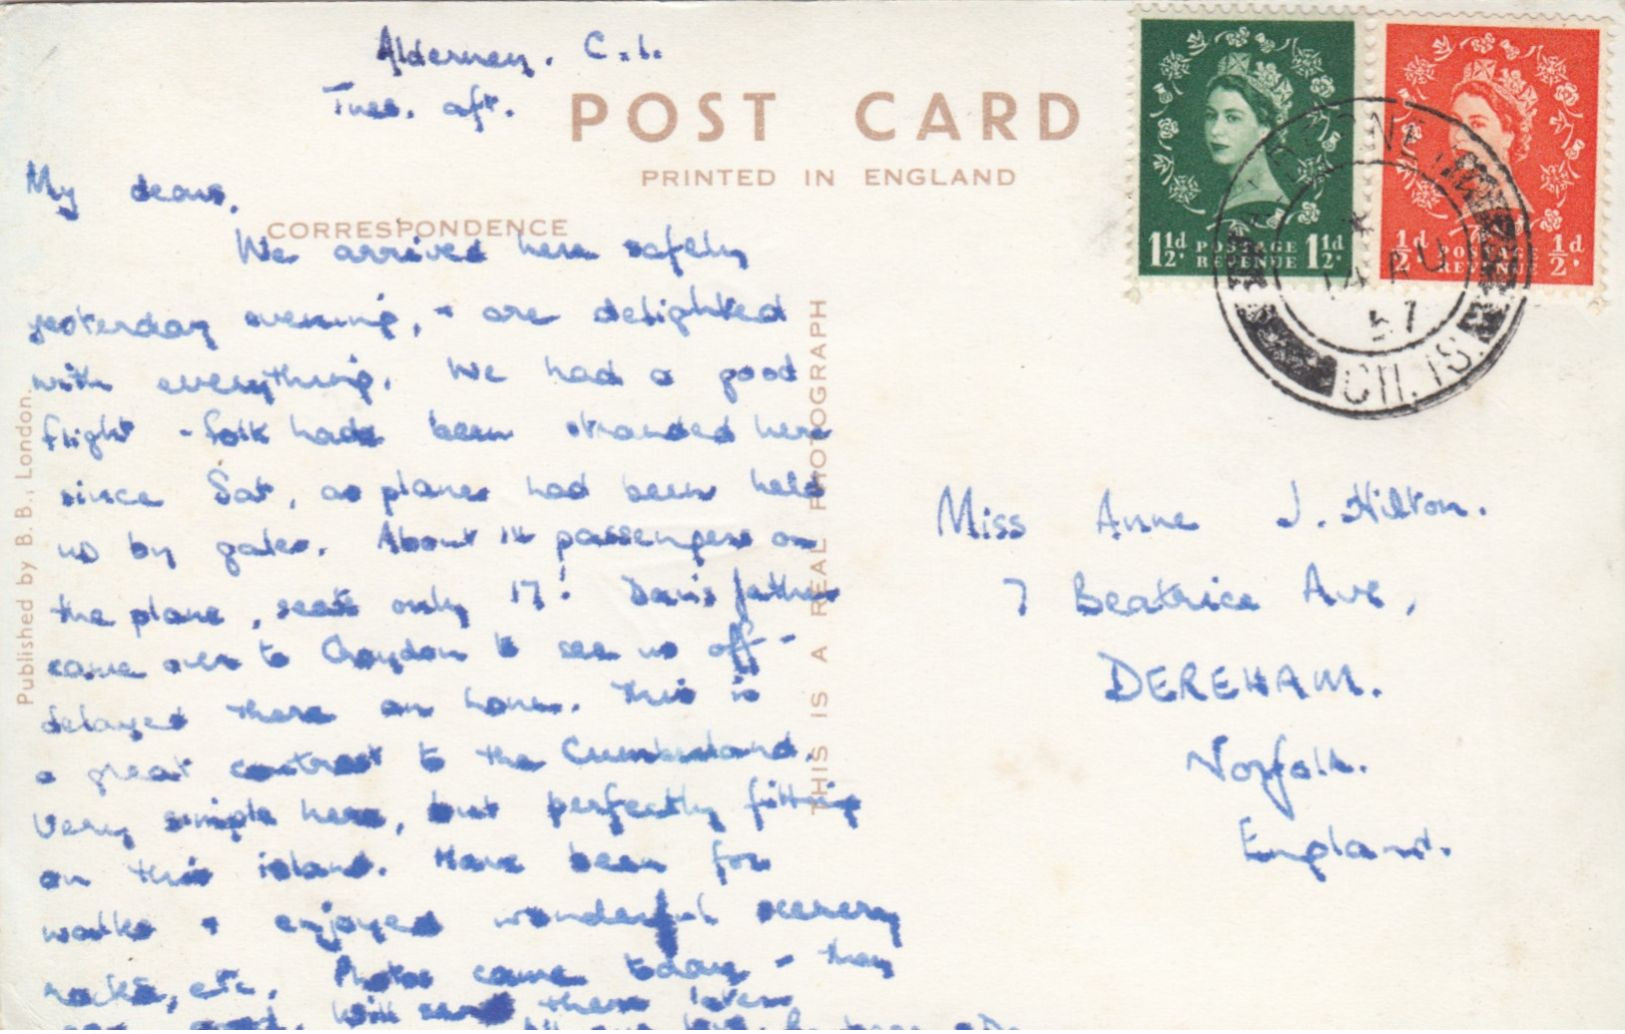 Alderney, C.I.
Tues. aft.
POST CARD
PRINTED IN ENGLAND
CORRESPONDENCE
My dears,
We arrived here safely
yesterday evening, & are delighted
with everything. We had a good
flight - folk had been stranded here
since Sat, as planes had been held
up by gales. About 14 passengers on
the plane, seats only 17! father
came over to Croydon to see us off -
delayed there an hour. This is
a great contrast to the Cumberland.
Very simple here, but perfectly fitting
on this island. Have been for
walks & enjoyed wonderful scenery
rocks, etc. Photos came today - they
are good. Will send them later
All our love,
Published by B.B., London.
THIS IS A REAL PHOTOGRAPH
1½d POSTAGE REVENUE 1½d
½d POSTAGE REVENUE ½d
14 AU
57
CH. IS.
Miss Anne J. Hilton.
7 Beatrice Ave,
DEREHAM.
Norfolk.
England.